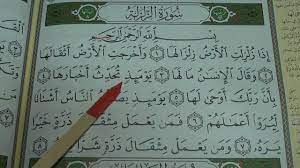 سُورَةُ الزَّلْزَلَةِ
بِسْمِ اللَّهِ الرَّحْمَٰنِ الرَّحِيمِ
إِذَا زُلْزِلَتِ الْأَرْضُ زِلْزَالَهَا ۝١ وَأَخْرَجَتِ الْأَرْضُ أَثْقَالَهَا
۝٢ وَقَالَ الْإِنسَانُ مَا لَهَا ۝٣ يَوْمَئِذٍ تُحَدِّثُ أَخْبَارَهَا ۝٤
بِأَنَّ رَبَّكَ أَوْحَىٰ لَهَا ۝٥ يَوْمَئِذٍ يَصْدُرُ النَّاسُ أَشْتَاتًا
لِّيُرَوْا أَعْمَالَهُمْ ۝٦ فَمَن يَعْمَلْ مِثْقَالَ ذَرَّةٍ خَيْرًا
يَرَهُ ۝٧ وَمَن يَعْمَلْ مِثْقَالَ ذَرَّةٍ شَرًّا يَرَهُ ۝٨